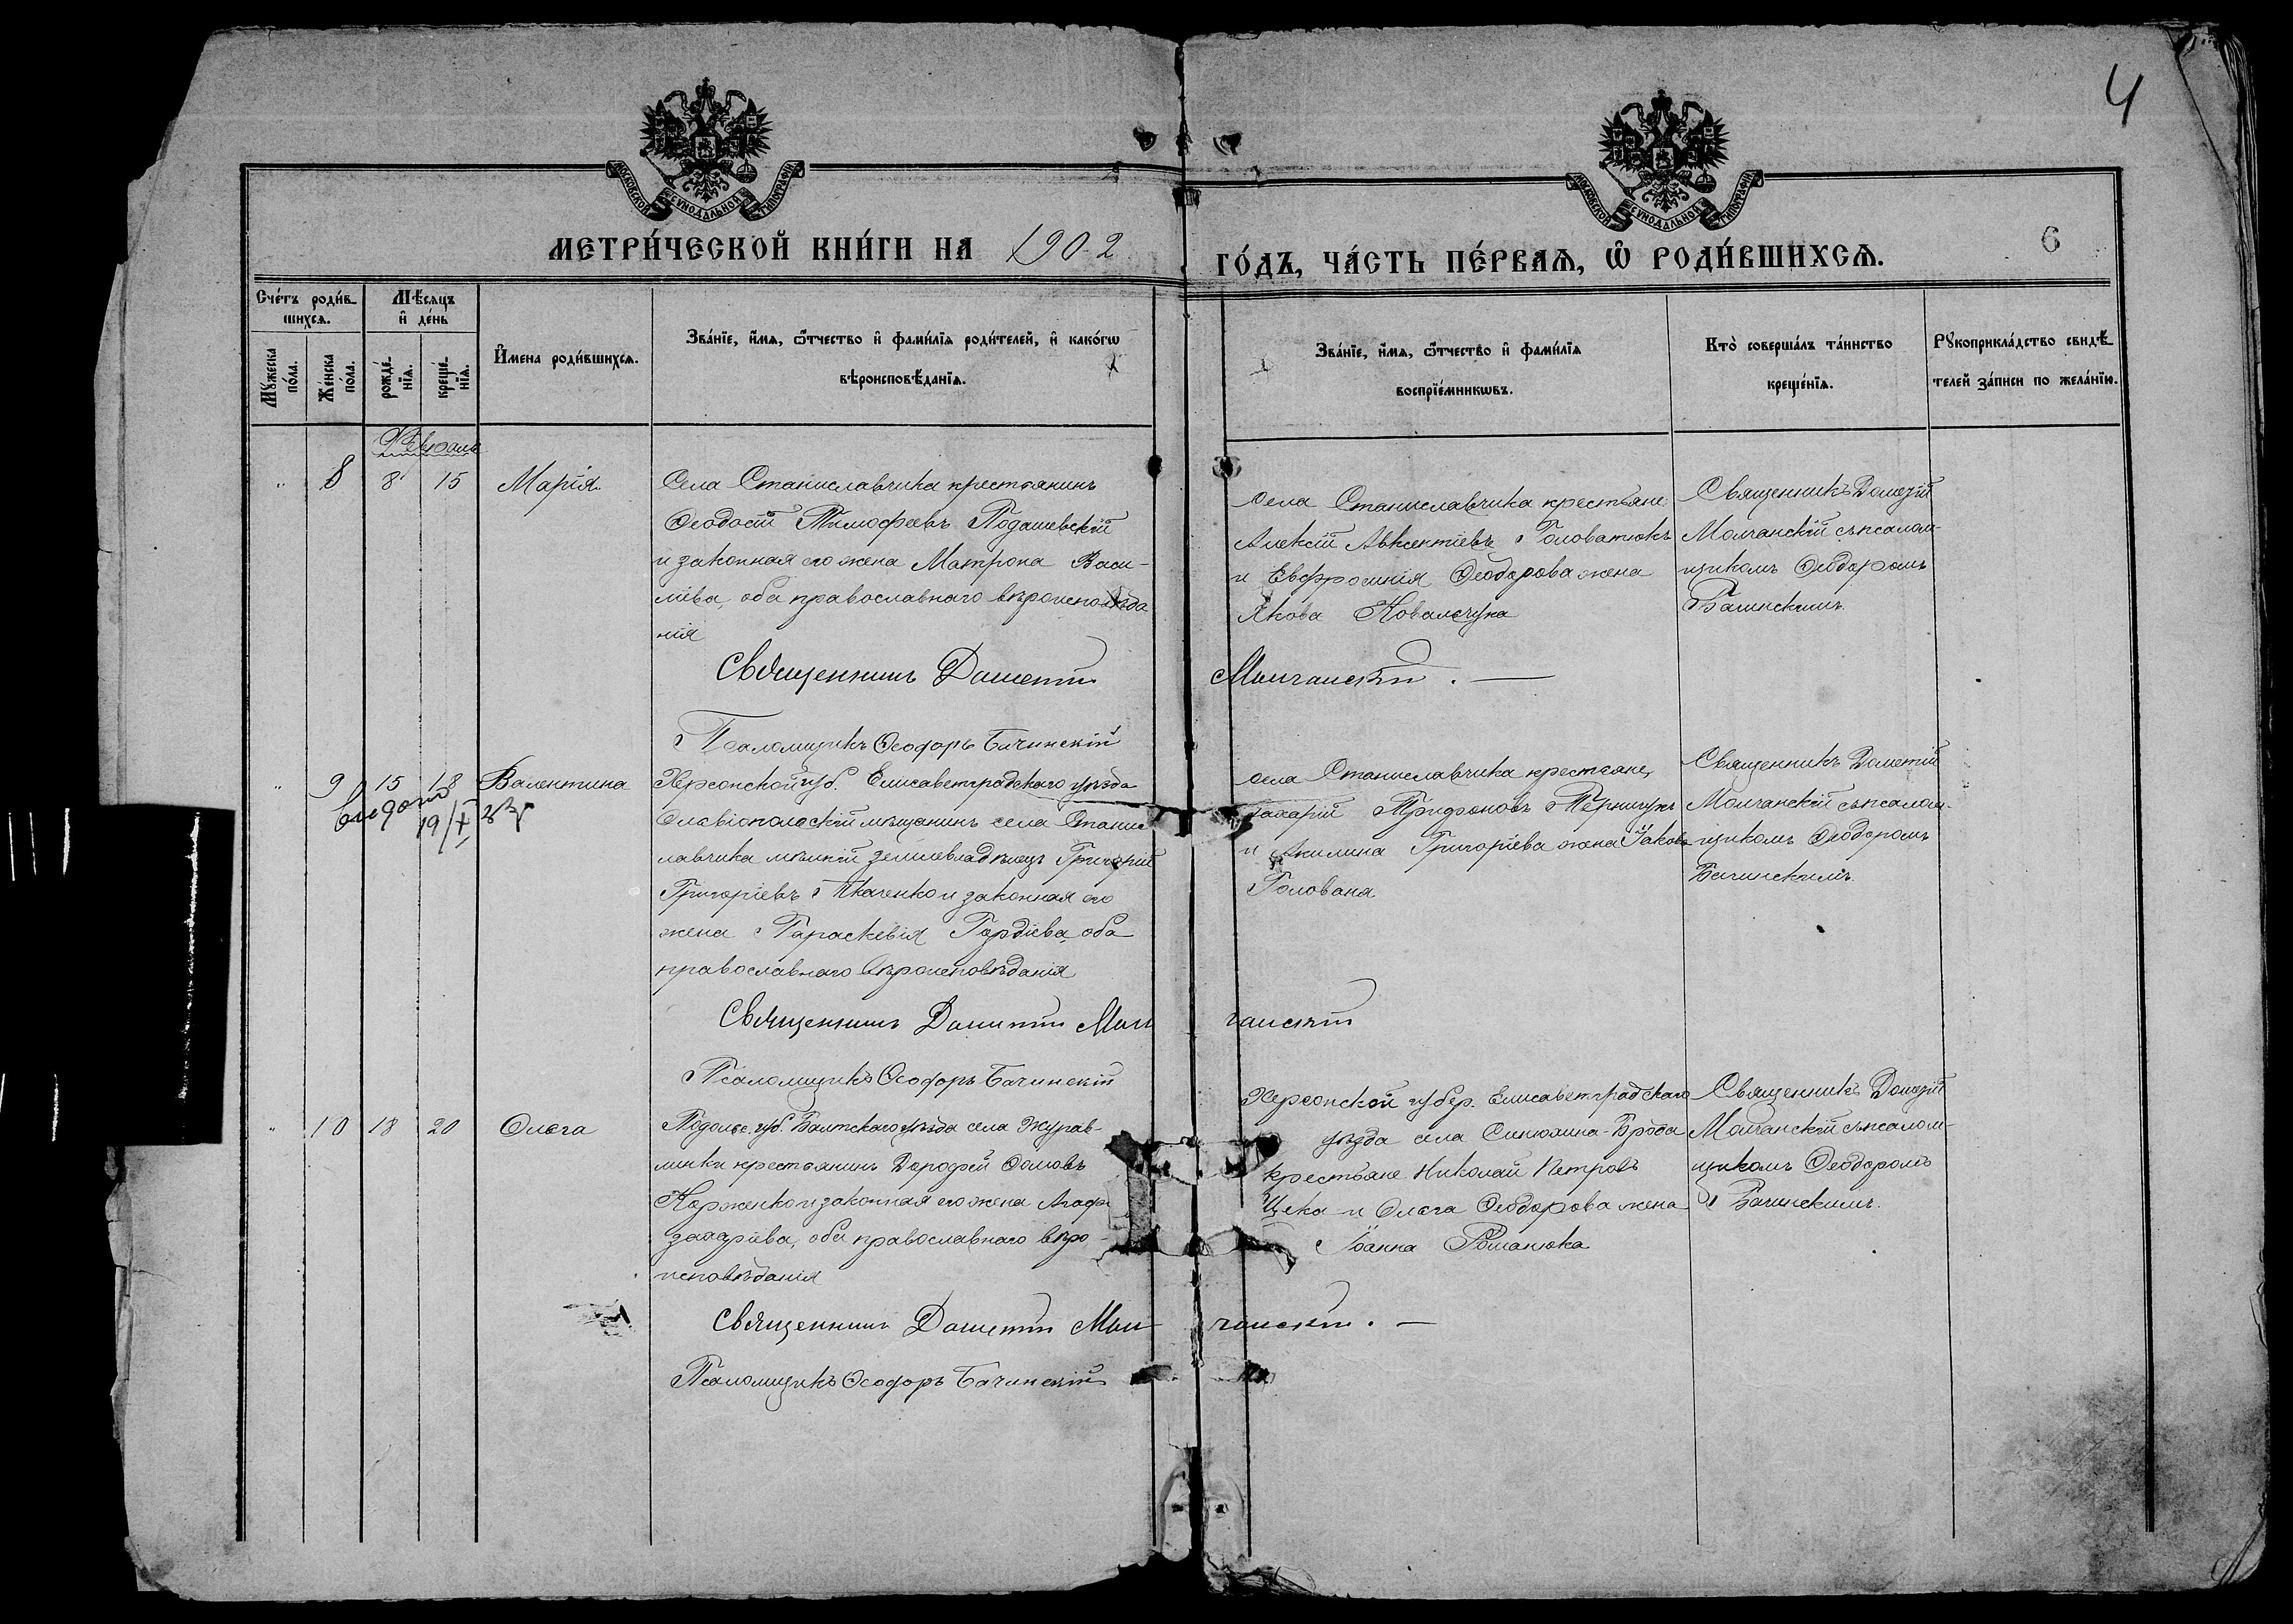 4
МОСКОВСКОЙ СѴНОДАЛЬНОЙ ТИПОГРАФІИ
МОСКОВСКОЙ СѴНОДАЛЬНОЙ ТИПОГРАФІИ
МЕТРИ́ЧЕСКОЙ КНИ́ГИ НА 1902
ГО́ДЪ, ЧА́СТЬ ПЕ́РВАѦ, Ѡ҆ РОДИ́ВШИХСѦ.
6
Сче́тъ роди́в-
шихсѧ.
Мѣ́сѧцъ
и҆ де́нь
Мꙋ́жеска
по́ла.
Же́нска
по́ла.
рожде́-
нїѧ.
креще́-
нїѧ.
И҆́мена роди́вшихсѧ.
Зва́нїе, и҆́мѧ, ѻ҆́тчество и҆ фами́лїѧ роди́телей, и҆ како́гѡ
вѣроисповѣ́данїѧ.
Зва́нїе, и҆́мѧ, ѻ҆́тчество и҆ фами́лїѧ
воспрїе́мникѡвъ.
Кто̀ соверша́лъ та́инство
креще́нїѧ.
Рꙋкоприкла́дство свидѣ́-
телей за́писи по жела́нїю.
Февраль
" 8 8 15 Марія.
Села Станиславчика крестьянинъ
Ѳеодосій Тимофеевъ Подашевскій
и законная его жена Матрона Васи-
ліева, оба православнаго вѣроисповѣда
нія
села Станиславчика крестьяне:
Алексій Авксентіевъ Головатюкъ
и Евфросинія Ѳеодорова жена
Якова Ковальчука
Священникъ Дометій
Молчанскій съ псалом-
щикомъ Ѳеодоромъ
Бачинскимъ.
Священникъ Дометій Молчанскій. —
Псаломщикъ Ѳеодоръ Бачинскій
" 9 15 18 Валентина
19/X
Херсонской губ. Елисаветградскаго уѣзда
Ольвіопольскій мѣщанинъ села Станис
лавчика мѣлкій землевладѣлецъ Григорій
Григоріевъ Ткаченко и законная его
жена Параскевія Гордіева, оба
православнаго вѣроисповѣданія
села Станиславчика крестьяне,
Захарій Трифоновъ
и Акилина Григоріева жена Іакова
Голована
Священникъ Дометій
Молчанскій съ псалом-
щикомъ Ѳеодоромъ
Бачинскимъ.
Священникъ Дометій Молчанскій
Псаломщикъ Ѳеодоръ Бачинскій
" 10 18 20 Ольга
Подольс. губ. Балтскаго уѣзда села Журав-
линки крестьянинъ Дорофей Ѳомовъ
Корженко и законная его жена Агаф
Захаріева, оба православнаго вѣро-
исповѣданія
Херсонской губер. Елисаветградскаго
уѣзда села Синюхина-Брода
крестьяне Николай Петровъ
Цѣка и Ольга Ѳеодорова жена
Іоанна Романюка
Священникъ Дометій
Молчанскій съ псалом-
щикомъ Ѳеодоромъ
Бачинскимъ.
Священникъ Дометій Молчанскій. —
Псаломщикъ Ѳеодоръ Бачинскій